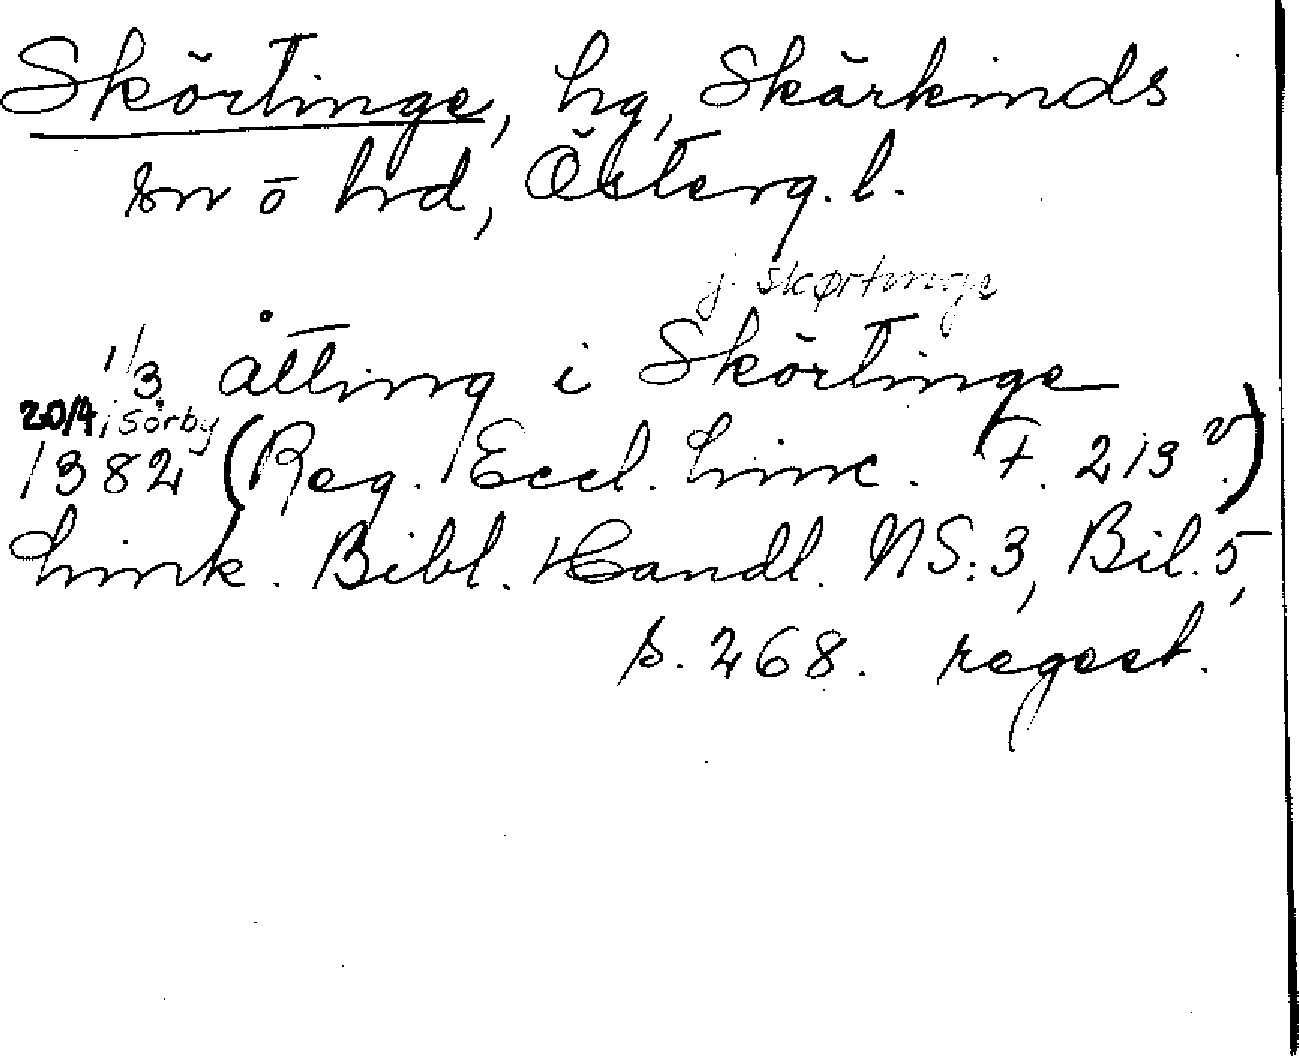 Skörtinge, hg, Skärkinds
sn o hrd, Österg. l.
j. skørtinge
1/3 åtting i Skörtinge
20/4 i Sörby
1382 (Reg. Eccl. Linc. F. 213 v.)
Link. Bibl. Handl. NS:3, Bil. 5,
s. 268. regest.